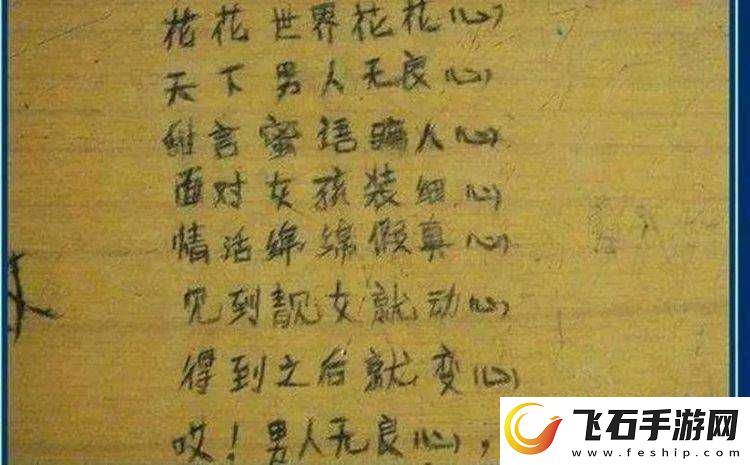 花花世界花花(心)
天下男人无良(心)
甜言蜜语骗人(心)
面对女孩装细(心)
情话绵绵假真(心)
见到靓女就动(心)
得到之后就变(心)
哎！男人无良(心),
飞石手游网
www.feship.com